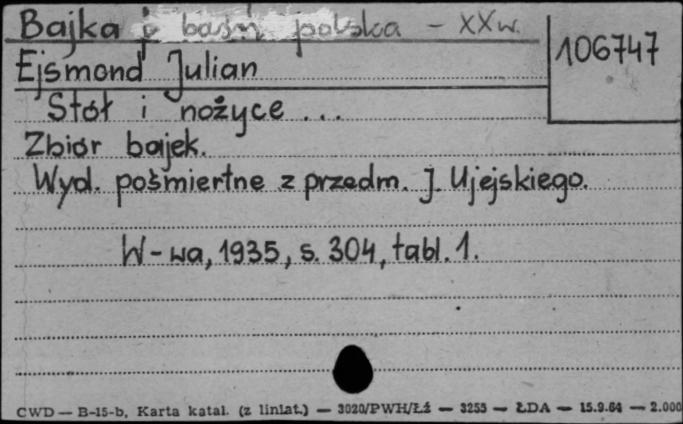 Bajka i baśń polska - XX w.
106747
Ejsmond Julian
Stół i nożyce ...
Zbiór bajek.
Wyd. pośmiertne z przedm. J. Ujejskiego.
W-wa, 1935, s. 304, tabl. 1.
CWD — B-15-b, Karta katal. (z liniat.) — 3020/PWH/Łź — 3255 — ŁDA — 15.9.64 — 2.000